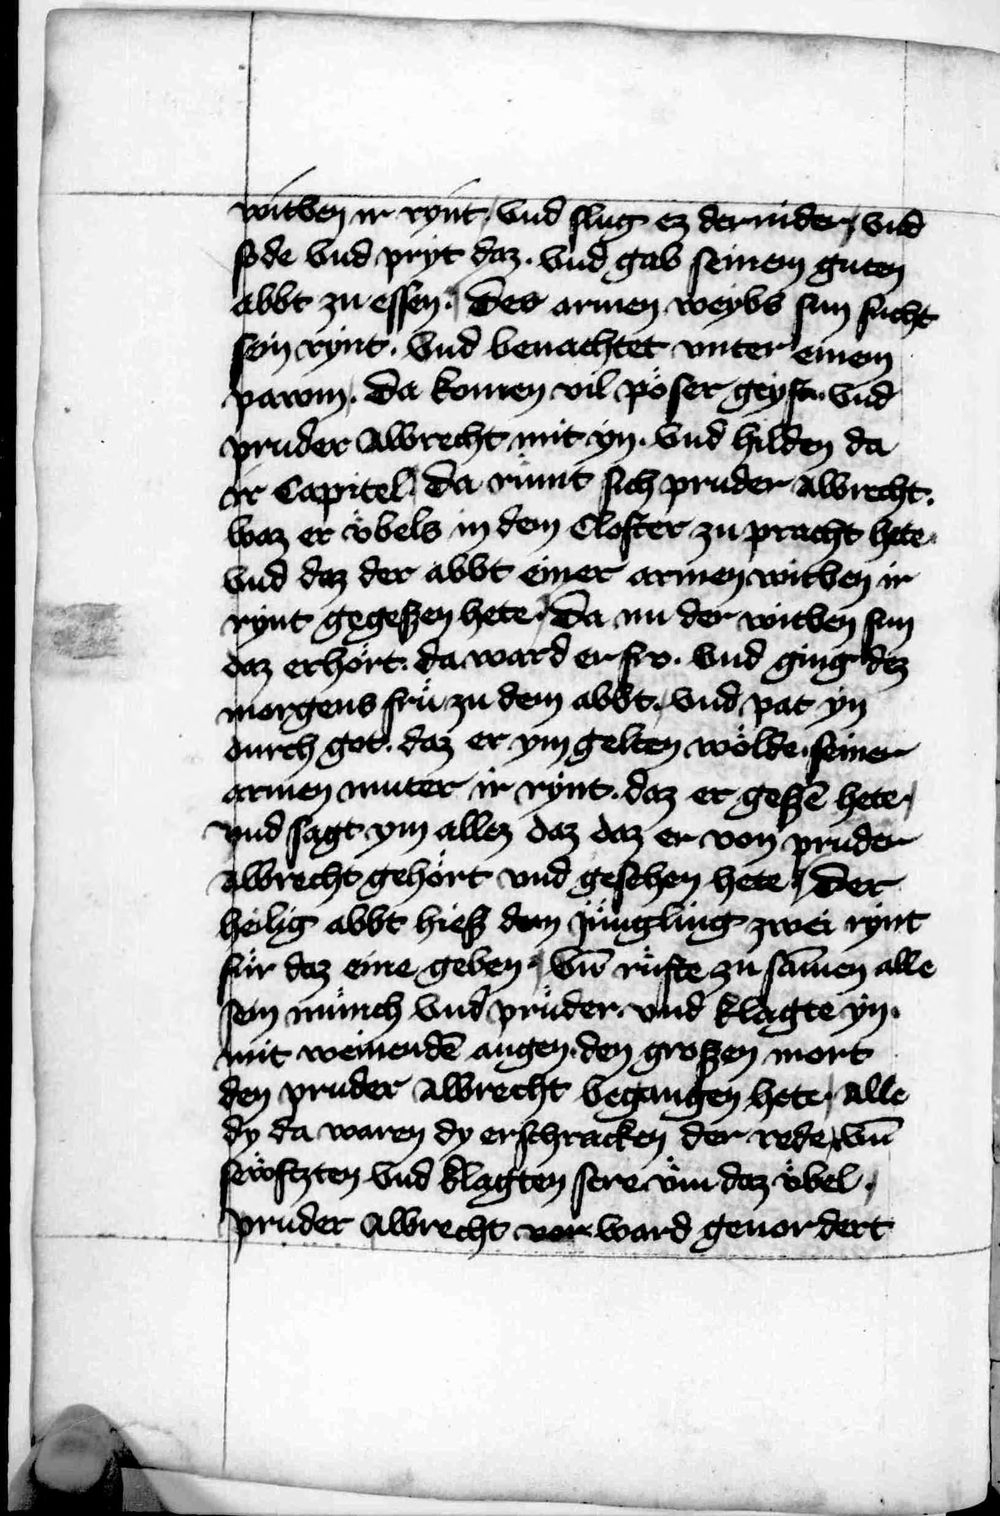 witben ir rynt / vnd slug ez dernider / vnd
sode vnd pryt daz . vnd gab seinem guten
abbt zu essen . / Des armen weybs sun sucht
sein rynt . Vnd benachtet vnter einem
pawm . Da komen vil pöser geyst . vnd
pruder Albrecht mit yn . vnd hilden da
ir Capitel . Da rümt sich pruder Albrecht .
waz er vbels in dem Closter zu pracht hete .
Vnd daz der abbt einer armen witben ir
rynt gegeßen hete . / Da nu der witben sun
daz erhört . da ward er fro . Vnd ging dez
morgens frü zu dem abbt . vnd pat yn
durch got . daz er ym gelten wölde . seiner
armen muter ir rynt . daz er geßē hete . /
vnd sagt ym allez daz daz er von pruder
Albrecht gehört vnd gesehen hete / Der
heilig abbt hieß dem Jüngling zwei rynt
für daz eine geben . / Vn̄ rüfte zu sāmen alle
sein münch vnd prüder . vnd klagte yn .
mit weinendē augen . den großen mort
den pruder Albrecht begangen hete / Alle
dy da waren dy erschracken der rede / vn̄
seöfczten vnd klagten sere vm daz vbel . /
pruder Albrecht vor ward geuordert